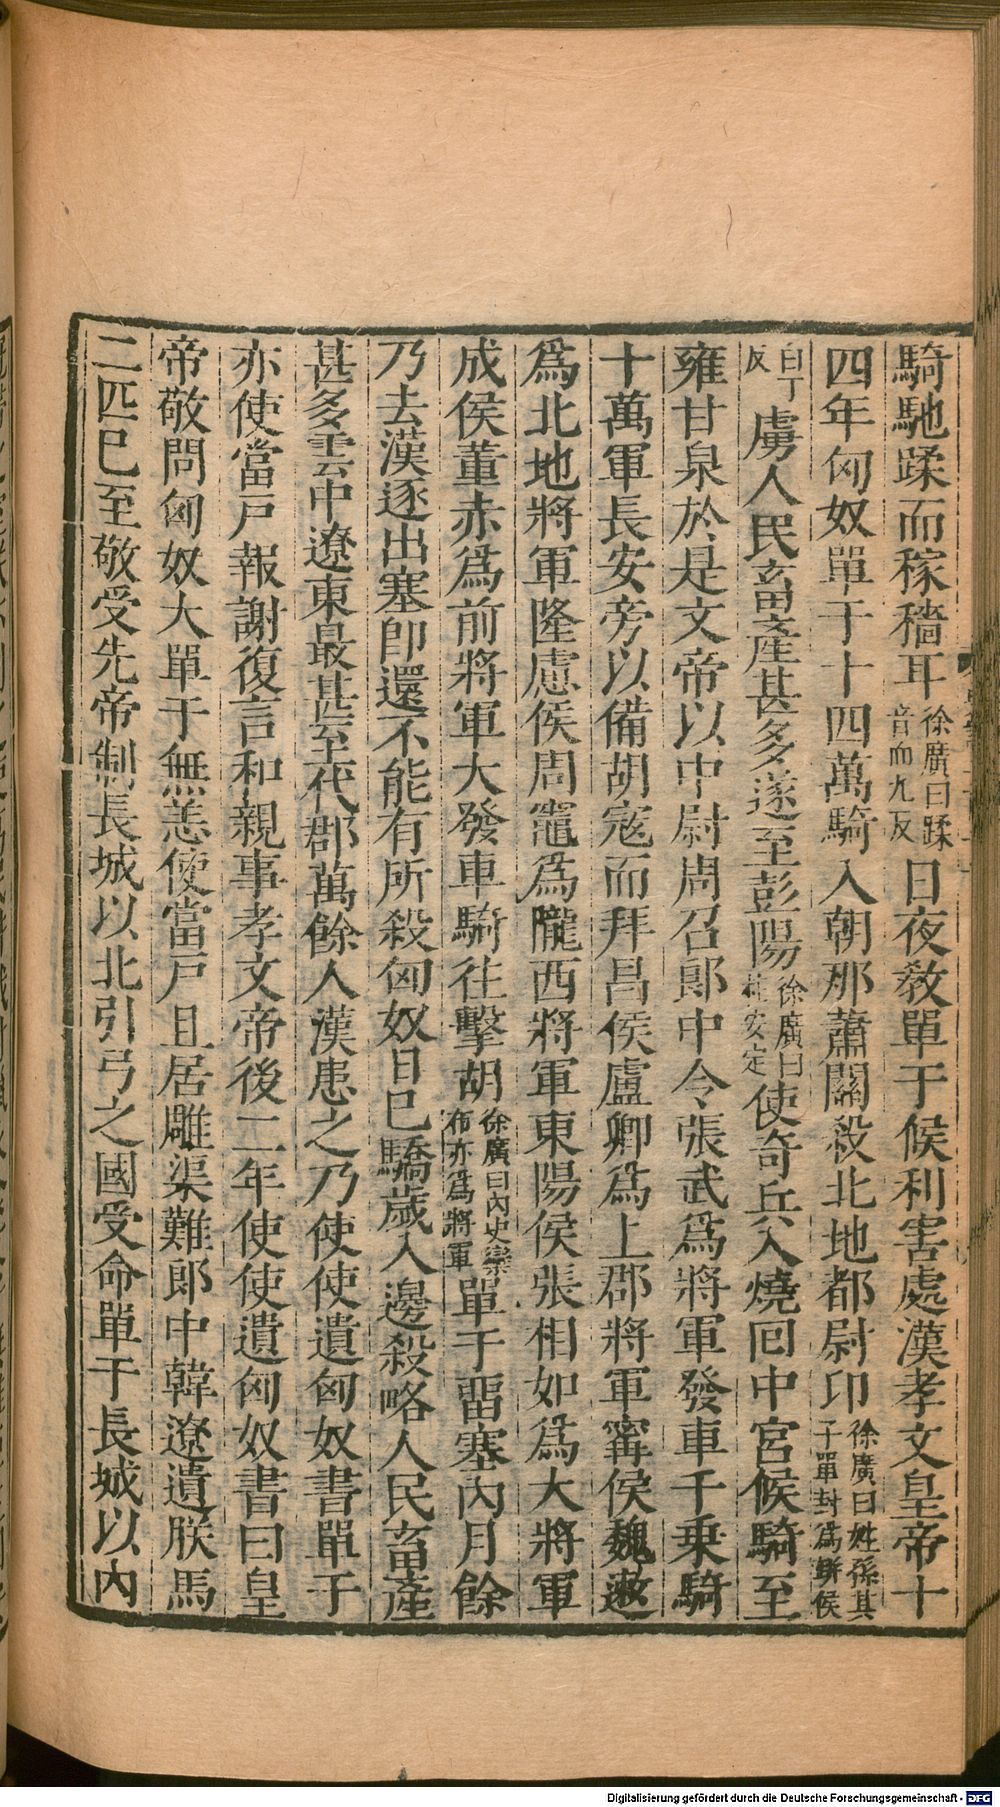 騎馳蹂而稼穡耳徐廣曰蹂音而九反日夜敎單于候利害處漢孝文皇帝十
四年匈奴單于十四萬騎入朝那蕭關殺北地都尉卬徐廣曰姓孫其子單封爲缾侯
白丁反虜人民畜產甚多遂至彭陽徐廣曰在安定使奇兵入燒囘中宮候騎至
雍甘泉於是文帝以中尉周召郞中令張武爲將軍發車千乗騎
十萬軍長安旁以備胡寇而拜昌侯盧卿爲上郡將軍寗侯魏遫
爲北地將軍隆慮侯周竈爲隴西將軍東陽侯張相如爲大將軍
成侯董赤爲前將軍大發車騎往擊胡徐廣曰內史欒布亦爲將軍單于畱塞內月餘
乃去漢逐出塞卽還不能有所殺匈奴日巳驕歲入邊殺略人民畜產
甚多雲中遼東最甚至代郡萬餘人漢患之乃使使遺匈奴書單于
亦使當戸報謝復言和親事孝文帝後二年使使遺匈奴書曰皇
帝敬問匈奴大單于無恙使當戸且居雕渠難郞中韓遼遺朕馬
二匹巳至敬受先帝制長城以北引弓之國受命單于長城以內
Digitalisierung gefördert durch die Deutsche Forschungsgemeinschaft - DFG